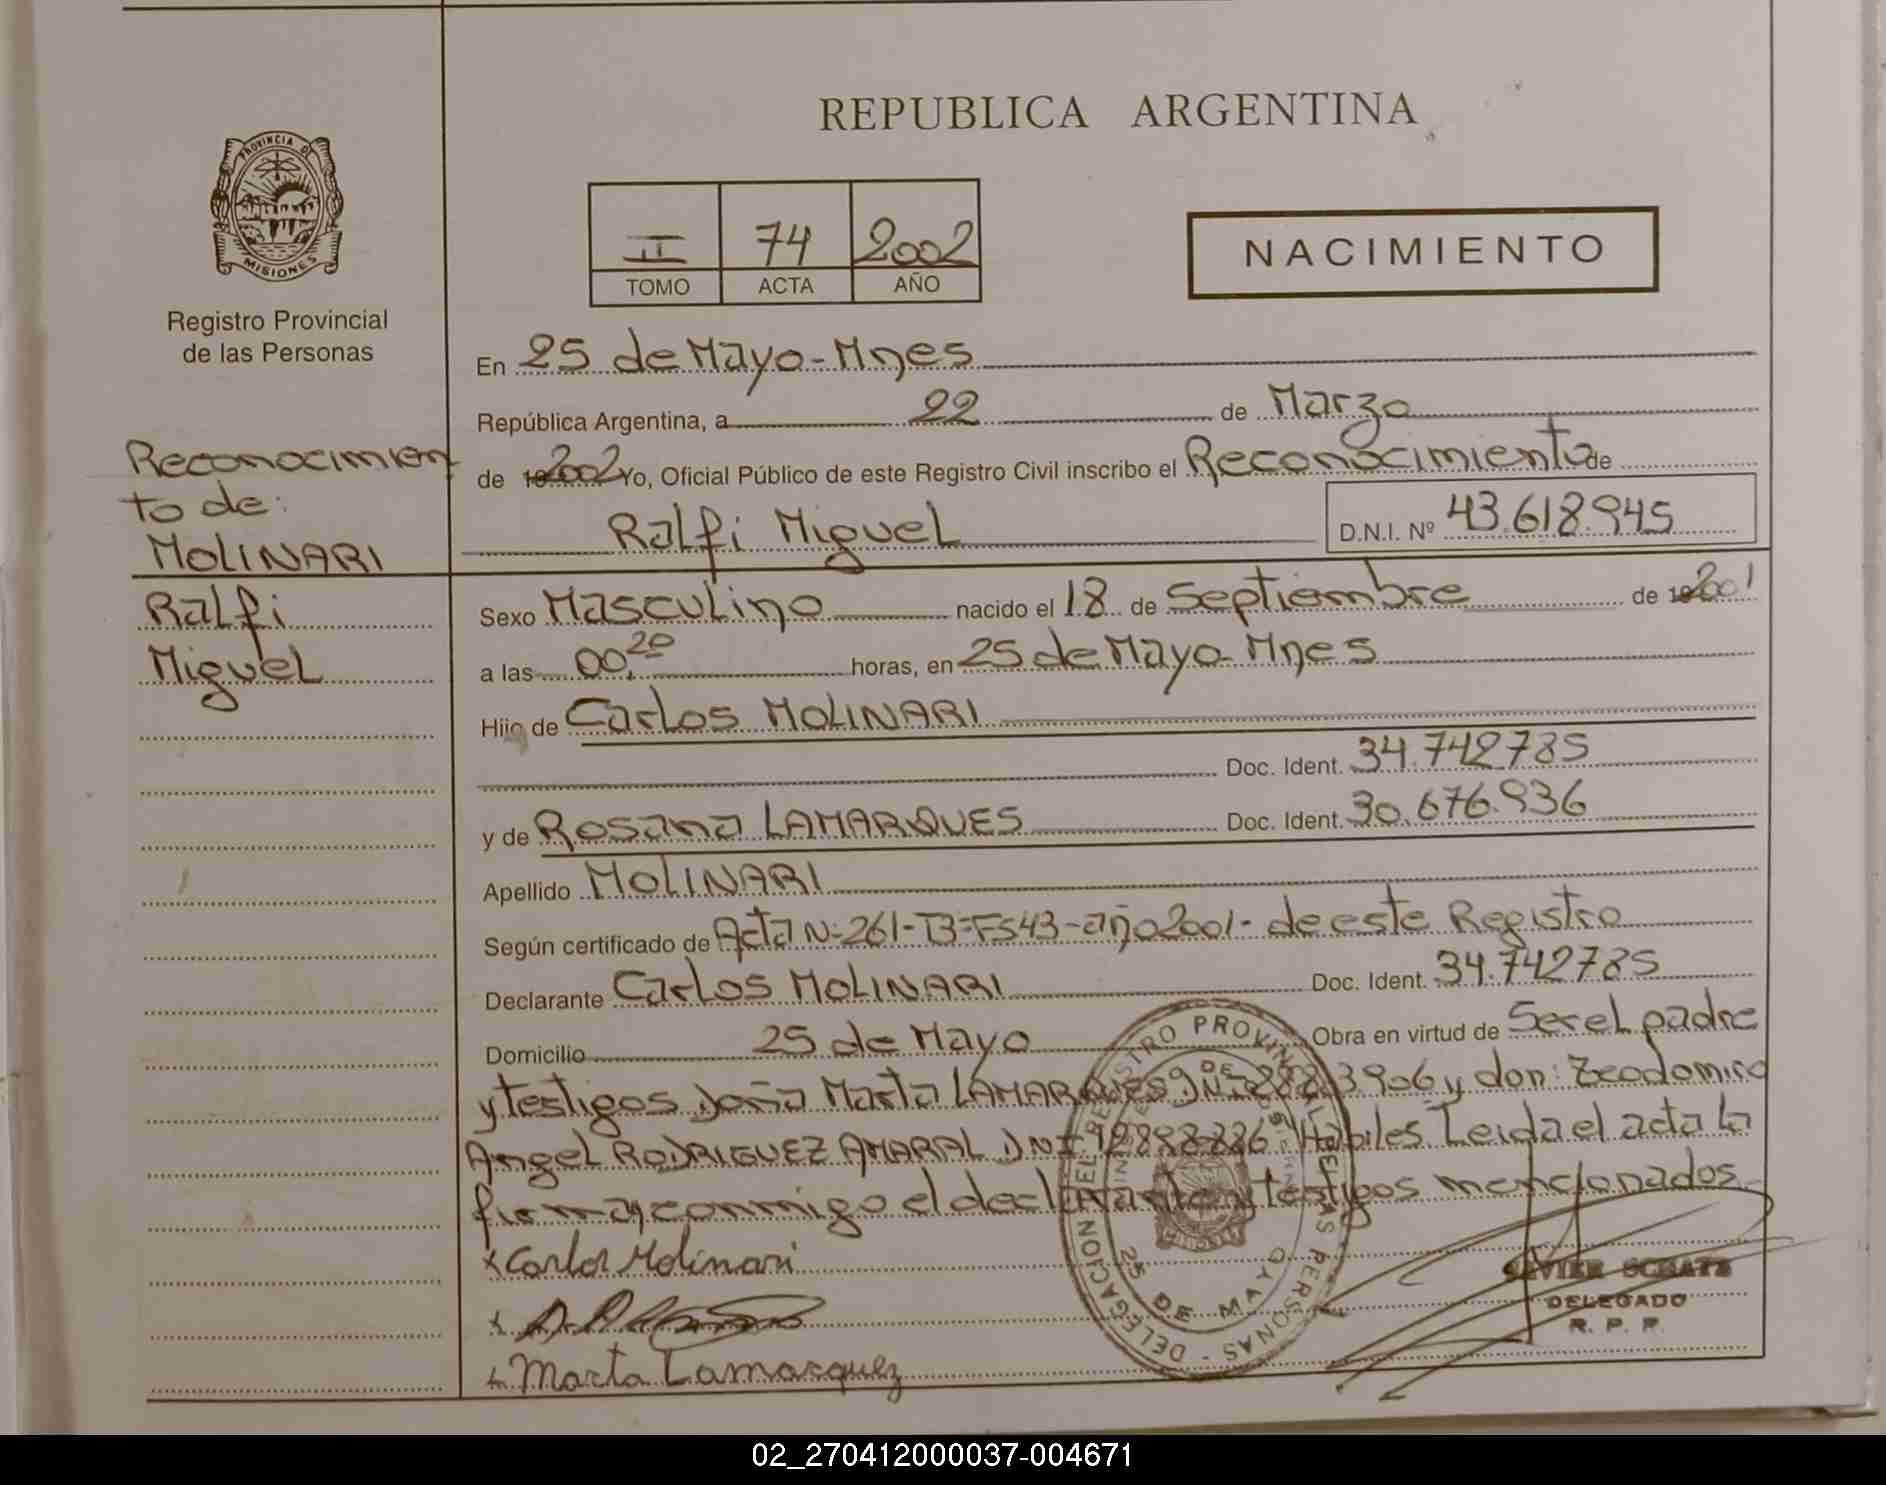 REPUBLICA ARGENTINA
PROVINCIA DE
MISIONES
Registro Provincial
de las Personas
II 74 2002
TOMO ACTA AÑO
NACIMIENTO
Reconocimien
to de:
MOLINARI
Ralfi
Miguel
En 25 de Mayo-Mnes
República Argentina, a 22 de Marzo
de 2002 Yo, Oficial Público de este Registro Civil inscribo el Reconocimiento de
Ralfi Miguel D.N.I. Nº 43.618.945
Sexo Masculino nacido el 18 de Septiembre de 2001
a las 00,20 horas, en 25 de Mayo-Mnes
Hijo de Carlos MOLINARI
Doc. Ident. 34.742785
y de Rosana LAMARQUES Doc. Ident. 30.676.936
Apellido MOLINARI
Según certificado de Acta N:261-T3=Fs43-año2001- de este Registro
Declarante Carlos MOLINARI Doc. Ident. 34.742785
Domicilio 25 de Mayo Obra en virtud de Ser el padre
y testigos Doña Marta LAMARQUES DNI 3906 y don: Zeodomiro
Angel RODRIGUEZ AMARAL DNI Habiles Leida el acta la
firman conmigo el declarante y testigos mencionados
x Carlos Molinari
x
x Marta Lamarquez
DELEGACION DEL REGISTRO PROVINCIAL DE LAS PERSONAS - DELEGACION
25 DE MAYO
DELEGADO
R. P. P.
02_270412000037-004671